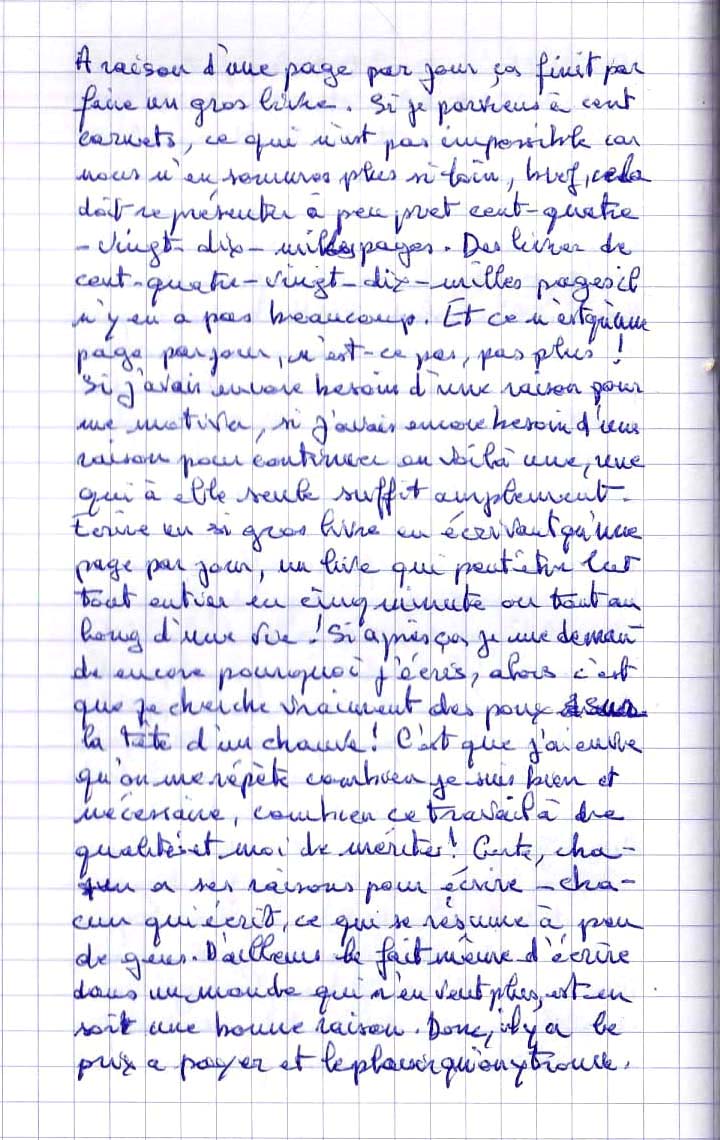 A raison d'une page par jour ça finit par
faire un gros livre. Si je parviens à cent
carnets, ce qui n'est pas impossible car
nous n'en sommes plus si loin, bref, cela
doit représenter à peu pret cent-quatre
-vingt-dix-milles pages. Des livres de
cent-quatre-vingt-dix-milles pages il
n'y en a pas beaucoup. Et ce n'est qu'une
page par jour, n'est-ce pas, pas plus !
Si j'avais encore besoin d'une raison pour
me motiver, si j'avais encore besoin d'une
raison pour continuer en voilà une, une
qui à elle seule suffit amplement.
Ecrire un si gros livre en écrivant qu'une
page par jour, un livre qui peut être lut
tout entier en cinq minute ou tout au
long d'une vie ! Si après ça je me deman
de encore pourquoi j'écris, alors c'est
que je cherche vraiment des poux sur
la tête d'un chauve ! C'est que j'ai envie
qu'on me répète combien je suis bien et
nécessaire, combien ce travail à de
qualités et moi de mérites ! Certe, cha-
cun a ses raisons pour écrire - cha-
cun qui écrit, ce qui se résume à peu
de gens. D'ailleurs le fait même d'écrire
dans un monde qui n'en veut plus, est en
soit une bonne raison. Donc, il y a le
prix a payer et le plaisir qu'on y trouve.